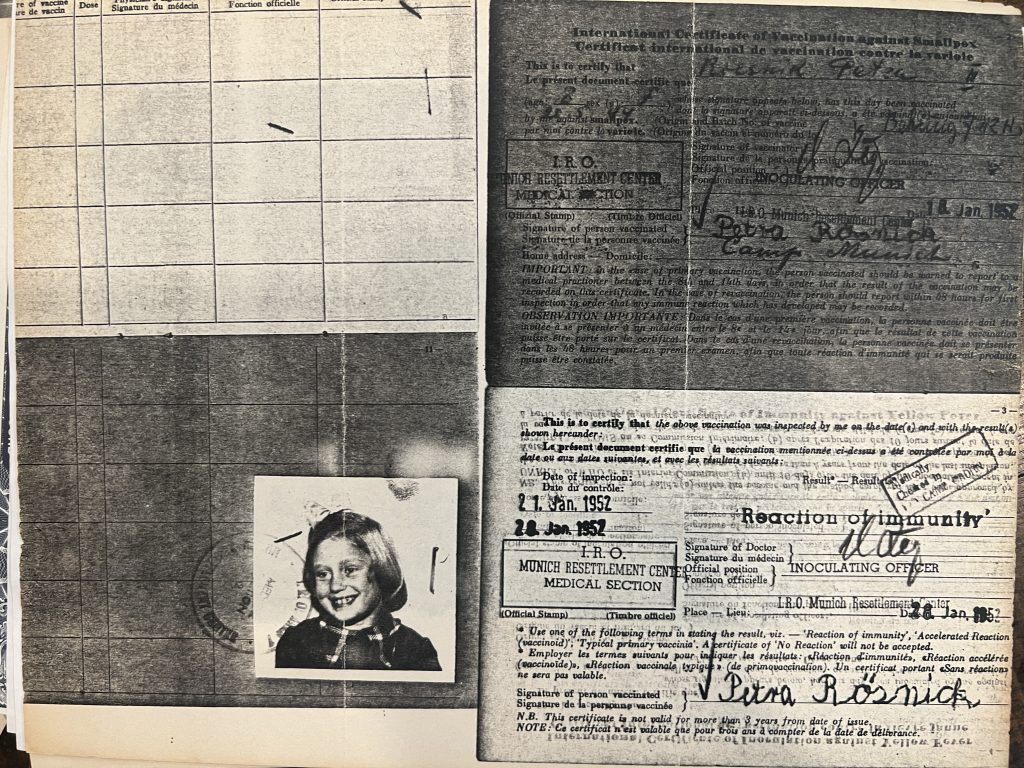 re of vaccine
ure de vaccin
Dose
Signature du médecin
Fonction officielle
11
International Certificate of Vaccination against Smallpox
Certificat international de vaccination contre la variole
This is to certify that
Le présent document certifie que
whose signature appears below, has this day been vaccinated
dont la signature apparaît ci-dessous, a été vacciné(e)
by me against smallpox. (Origin and Batch No. of vaccine
par moi contre la variole. (Origine du vaccin et numéro du lot
Signature of vaccinator
Signature de la personne
vaccination.
Official position
Fonction officielle
INOCULATING OFFICER
I.R.O.
MUNICH RESETTLEMENT CENTER
MEDICAL SECTION
(Official Stamp) (Timbre Officiel)
I.R.O. Munich Resettlement Center
18 Jan. 1952
Signature of person vaccinated
Signature de la personne vaccinée
Petra Rösnick
Home address — Domicile:
Camp. Munich
IMPORTANT: in the case of primary vaccination, the person vaccinated should be warned to report to a
medical practioner between the 8th and 14th days, in order that the result of the vaccination may be
recorded on this certificate. In the case of revaccination, the person should report within 48 hours for first
inspection in order that any immune reaction which has developed may be recorded.
OBSERVATION IMPORTANTE: Dans le cas d'une première vaccination, la personne vaccinée doit être
invitée à se présenter à un médecin entre le 8e et le 14e jour, afin que le résultat de cette vaccination
puisse être porté sur le certificat. Dans le cas d'une revaccination, la personne vaccinée doit se présenter
dans les 48 heures pour un premier examen, afin que toute réaction d'immunité qui se serait produite
puisse être constatée.
— 3 —
This is to certify that the above vaccination was inspected by me on the date(s) and with the result(s)
shown hereunder:
Le présent document certifie que la vaccination mentionnée ci-dessus a été contrôlée par moi à la
date ou aux dates suivantes, et avec les résultats suivants:
Date of inspection:
Date du contrôle:
Result* — Result
21. Jan. 1952
28. Jan. 1952
'Reaction of immunity'
I.R.O.
MUNICH RESETTLEMENT CENTER
MEDICAL SECTION
Signature of Doctor
Signature du médecin
Official position
Fonction officielle
INOCULATING OFFICER
(Official Stamp) (Timbre officiel)
Place — Lieu:
I.R.O. Munich Resettlement Center
28 Jan. 1952
* Use one of the following terms in stating the result, viz. — 'Reaction of immunity', 'Accelerated Reaction
(vaccinoid)', 'Typical primary vaccinia'. A certificate of 'No Reaction' will not be accepted.
* Employer les termes suivants pour indiquer les résultats: «Réaction d'immunité», «Réaction accélérée
(vaccinoïde)», «Réaction vaccinale typique» (de primovaccination). Un certificat portant «Sans réaction»
ne sera pas valable.
Signature of person vaccinated
Signature de la personne vaccinée
Petra Rösnick
N.B. This certificate is not valid for more than 3 years from date of issue.
NOTE: Ce certificat n'est valable que pour trois ans à compter de la date de délivrance.